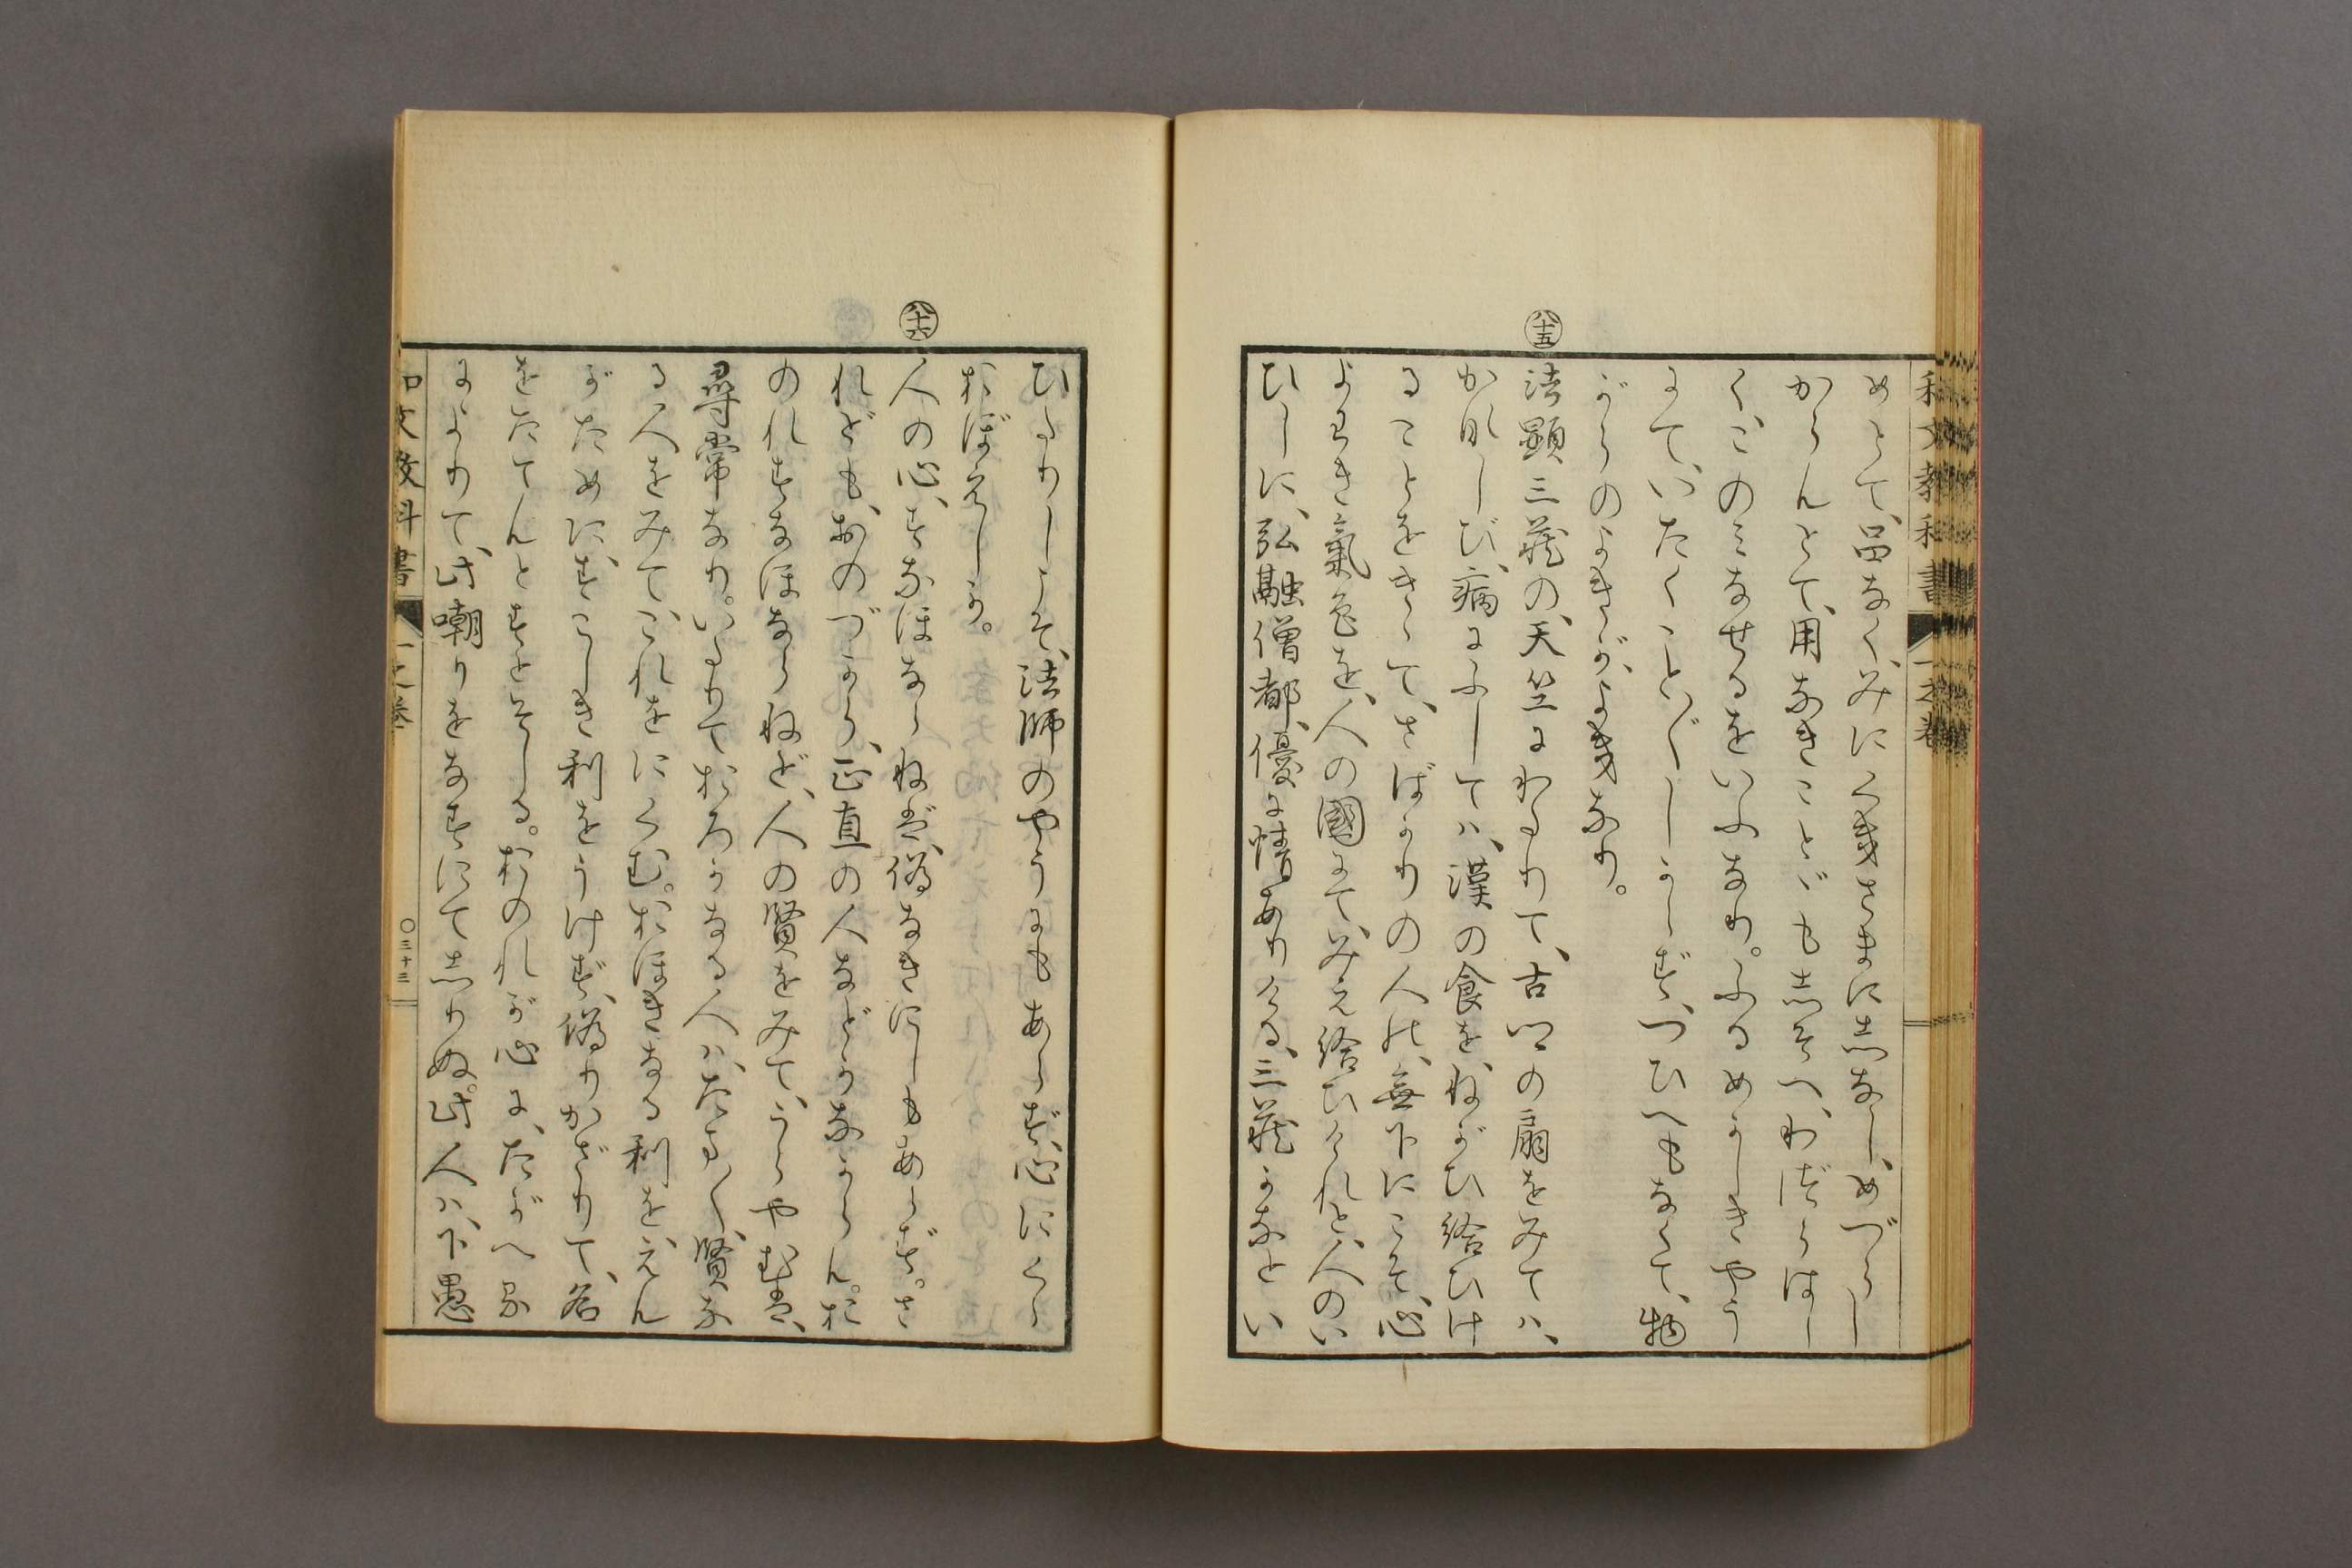 和文教科書 一之卷
めとて、品なく、みにくきさまにしなし、めづらし
からんとて、用なきことゞもしそへ、わづらはし
く、このミなせるをいふなり。ふるめかしきやう
にて、いたくこと〴〵しからず、つひへもなくて、物
がらのよきが、よきなり。
八十五
法顯三藏の、天竺にわたりて、古郷の扇をみてハ、
かなしび、病にふしてハ、漢の食を、ねがひ給ひけ
ることをきゝて、さばかりの人の、無下にこそ、心
よわき氣色を、人の國にて、みえ給ひけれと、人のい
ひしに、弘融僧都、優に情ありける、三藏かなとい
ひたりしこそ、法師のやうにもあらず、心にくゝ
おぼえしか。
八十六
人の心、すなほならねば、僞なきにしもあらず。さ
れども、おのづから、正直の人などかなからん。お
のれすなほならねど、人の賢をみて、うらやむは、
尋常なり。いたりておろかなる人ハ、たま〳〵、賢な
る人をみて、これをにくむ。おほきなる利を、えん
がために、すこしき利をうけず、僞りかざりて、名
をたてんとすとそしる。おのれが心に、たがへる
によりて、此嘲りをなすにてしりぬ。此人ハ、下愚
和文教科書 一之卷 〇三十三